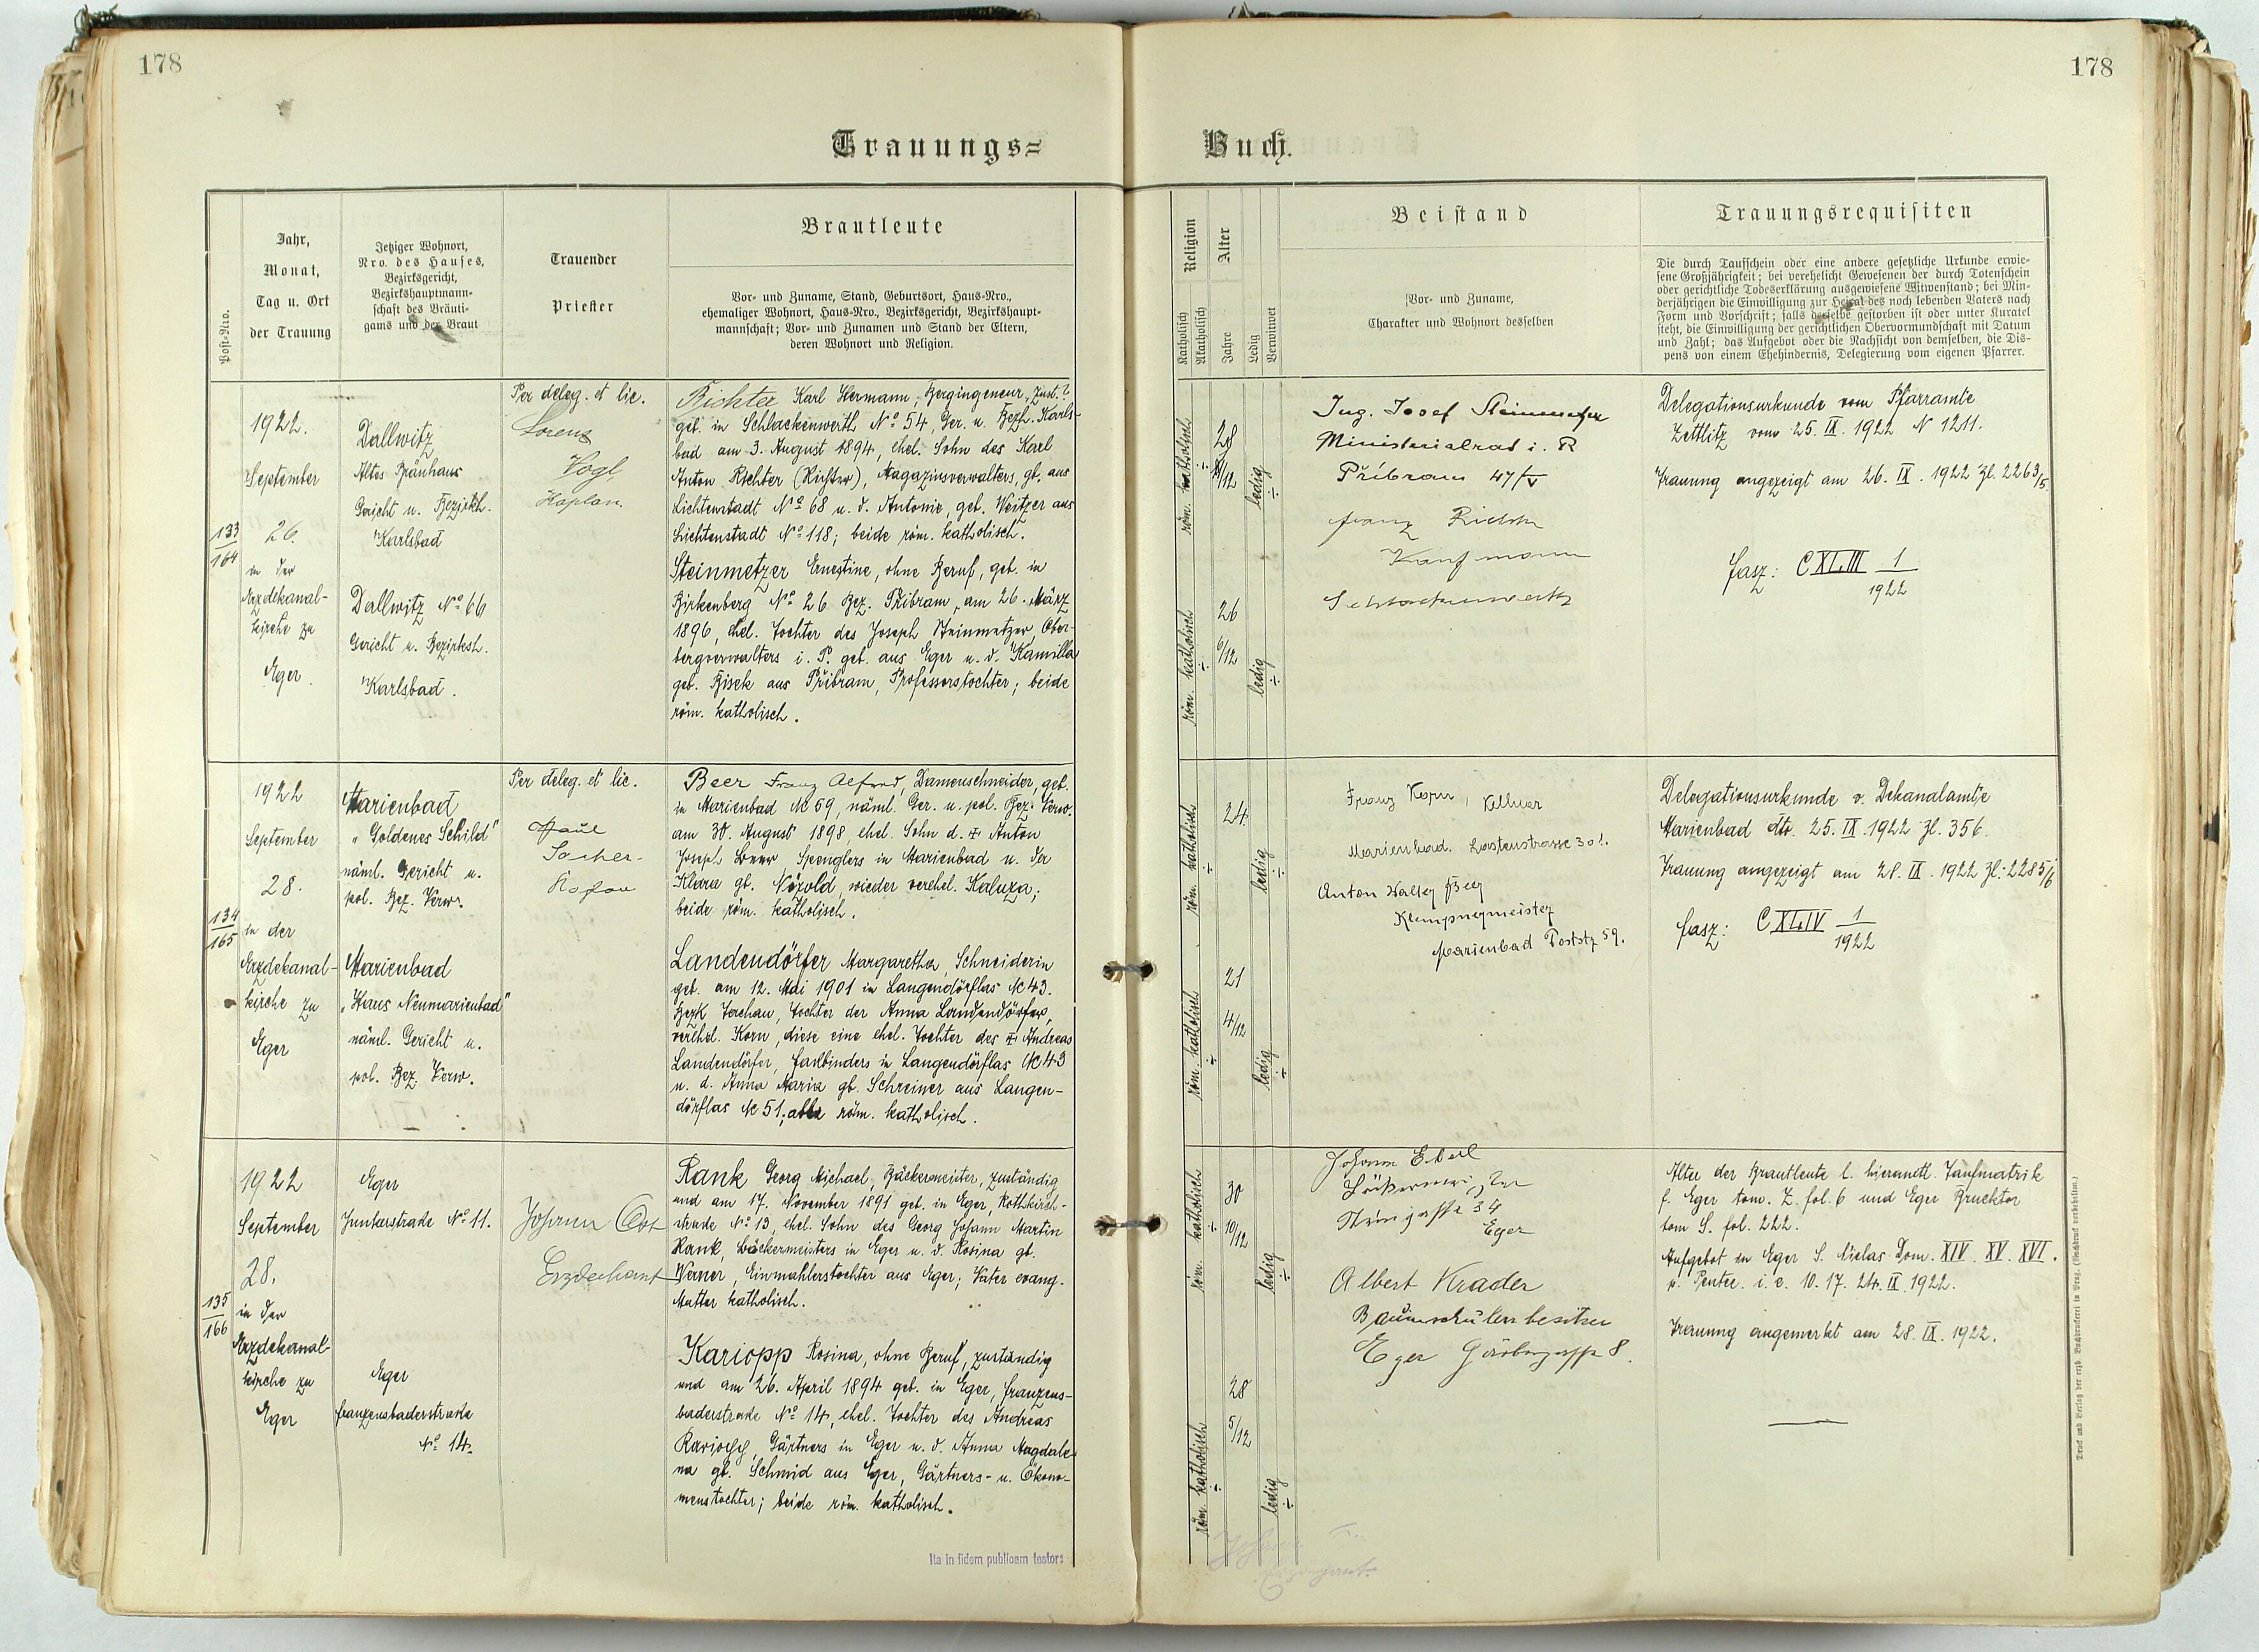 178
178
Trauungs=
Buch.
Post=Nro.
Jahr,
Monat,
Tag u. Ort
der Trauung
Jetziger Wohnort,
Nro. des Hauses,
Bezirksgericht,
Bezirkshauptmann-
schaft des Bräuti-
gams und der Braut
Trauender
Priester
Brautleute
Vor- und Zuname, Stand, Geburtsort, Haus-Nro.,
ehemaliger Wohnort, Haus-Nro., Bezirksgericht, Bezirkshaupt-
mannschaft; Vor- und Zunamen und Stand der Eltern,
deren Wohnort und Religion.
Religion
Katholisch
Akatholisch
Alter
Jahre
Ledig
Verwitwet
Beistand
Vor- und Zuname,
Charakter und Wohnort desselben
Trauungsrequisiten
Die durch Taufschein oder eine andere gesetzliche Urkunde erwie-
sene Großjährigkeit; bei verehelicht Gewesenen der durch Totenschein
oder gerichtliche Todeserklärung ausgewiesene Witwenstand; bei Min-
derjährigen die Einwilligung zur Heirat des noch lebenden Vaters nach
Form und Vorschrift; falls derselbe gestorben ist oder unter Kuratel
steht, die Einwilligung der gerichtlichen Obervormundschaft mit Datum
und Zahl; das Aufgebot oder die Nachsicht von demselben, die Dis-
pens von einem Ehehindernis, Delegierung vom eigenen Pfarrer.
133
164
1922.
September
26.
in der
Erzdekanal-
kirche zu
Eger.
Dallwitz
Altes Bräuhaus
Gericht u. Bezirksh.
Karlsbad
Dallwitz Nº 66
Gericht u. Bezirksh.
Karlsbad.
Per deleg. et lic.
Lorenz
Vogl,
Kaplan.
Richter Karl Hermann, Bergingeneur, zust.?
geb. in Schlackenwerth Nº 54, Ger. u. Bezh. Karls-
bad am 3. August 1894, ehel. Sohn des Karl
Anton Richter (Richter), Magazinsverwalters, gb. aus
Lichtenstadt Nº 68 u. d. Antonie, geb. Weitzer aus
Lichtenstadt Nº 118; beide röm. katholisch.
Steinmetzer Ernestine, ohne Beruf, geb. in
Birkenberg Nº 26 Bez. Přibram, am 26. März
1896, ehel. Tochter des Joseph Steinmetzer, Ober-
bergverwalters i. P. geb. aus Eger u. d. Kamilla
geb. Bisek aus Přibram, Professorstochter; beide
röm. katholisch.
röm. katholisch
28
1/12
ledig
röm. katholisch
26
6/12
ledig
Ing. Josef Steinmetzer
Ministerialrad i. R
Přibram 47/V
Franz Richter
Kaufmann
Schlackenwerth
Delegationsurkunde vom Pfarramte
Zettlitz vom 25. IX. 1922 N 1211.
Trauung angezeigt am 26. IX. 1922 Zl. 2263/5.
fasz: C XLIII 1
1922
134
165
1922
September
28.
in der
Erzdekanal-
kirche zu
Eger
Marienbad
"Goldenes Schild"
näml. Gericht u.
pol. Bez. Verw.
Marienbad
"Haus Neumarienbad"
näml. Gericht u.
pol. Bez. Verw.
Per deleg. et lic.
Paul
Socher
Kaplan
Beer Franz Alfred, Damenschneider, geb.
in Marienbad № 59, näml. Ger. u. pol. Bez. Verw.
am 30. August 1898, ehel. Sohn d. + Anton
Joseph Beer Spenglers in Marienbad u. der
Klara gb. Nözold, wieder verehel. Kaluza;
beide röm. katholisch.
Landendörfer Margaretha, Schneiderin
geb. am 12. Mai 1901 in Langendörflas № 43.
Bezk Tachau, Tochter der Anna Landendörfer,
verehel. Korn, diese eine ehel. Tochter des + Andreas
Landendörfer, Fassbinders in Langendörflas № 43
u. d. Anna Maria gb. Schreiner aus Langen-
dörflas № 51; alle röm. katholisch.
röm. katholisch
24
ledig
röm. katholisch
21
4/12
ledig
Franz Korn, Kellner
Marienbad. Lastenstrasse 301.
Anton Walter Beer
Klempnermeister
Marienbad Poststr 59.
Delegationsurkunde v. Dekanalamte
Marienbad dto. 25. IX. 1922 Zl. 356.
Trauung angezeigt am 28. IX. 1922 Zl. 2285/6
fasz: C XLIV 1
1922
135
166
1922
September
28.
in der
Erzdekanal-
kirche zu
Eger
Eger
Junkerstraße Nº 11.
Eger
Franzensbaderstraße
Nº 14.
Johann
Erzdechant
Rank Georg Michael, Bäckermeister, zuständig
und am 17. November 1891 geb. in Eger, Rothkirch-
straße Nº 13, ehel. Sohn des Georg Johann Martin
Rank, Bäckermeisters in Eger u. d. Rosina gb.
Werner, Einwahlerstochter aus Eger; Vater evang.
Mutter katholisch.
Kariopp Rosina, ohne Beruf, zuständig
und am 26. April 1894 geb. in Eger, Franzens-
baderstraße Nº 14, ehel. Tochter des Andreas
Kariopp, Gärtners in Eger u. d. Anna Magdale-
na gb. Schmid aus Eger, Gärtners- u. Ökono-
menstochter; beide röm. katholisch.
röm. katholisch
30
10/12
ledig
röm. katholisch
28
5/12
ledig
Johann Eberl
Bäckermeister
34
Eger
Albert Krader
Baumschulenbesitzer
Eger 8.
Alter der Brautleute l. hieramtl. Taufmatrik
f. Eger tom. Z. fol. 6 und Eger Brucktor
tom S. fol. 222.
Aufgebot in Eger S. Niclas Dom. XIV. XV. XVI.
p. Pentec. i. e. 10. 17. 24. IX. 1922.
Trauung angemerkt am 28. IX. 1922.
Ita in fidem publicam testor:
Druck und Verlag der erzb. Buchdruckerei in Prag. (Nachdruck verboten.)